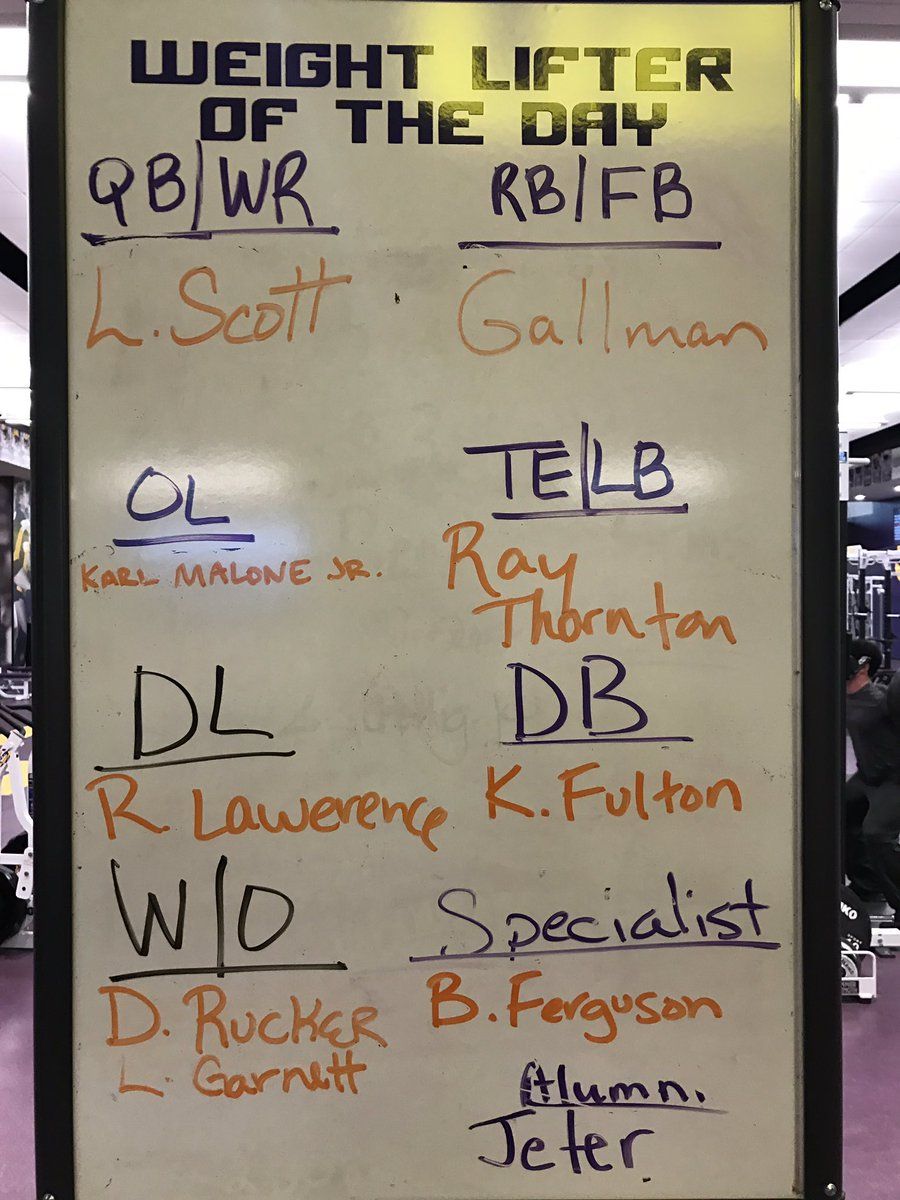 WEIGHT LIFTER
OF THE DAY
QB/WR
L. Scott
RB/FB
Gallman
OL
KARL MALONE JR.
TE/LB
Ray
Thornton
DL
R. Lawerence
DB
K. Fulton
W/O
D. RUCKER
L. Garnett
Specialist
B. Ferguson
Alumn.
Jeter